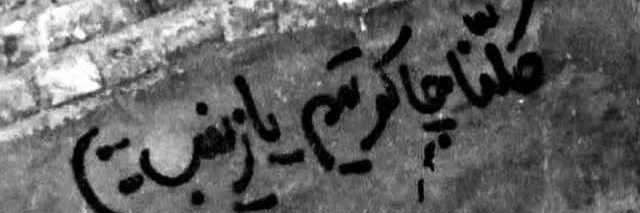 کلّنا چاکرتیم یا زینب